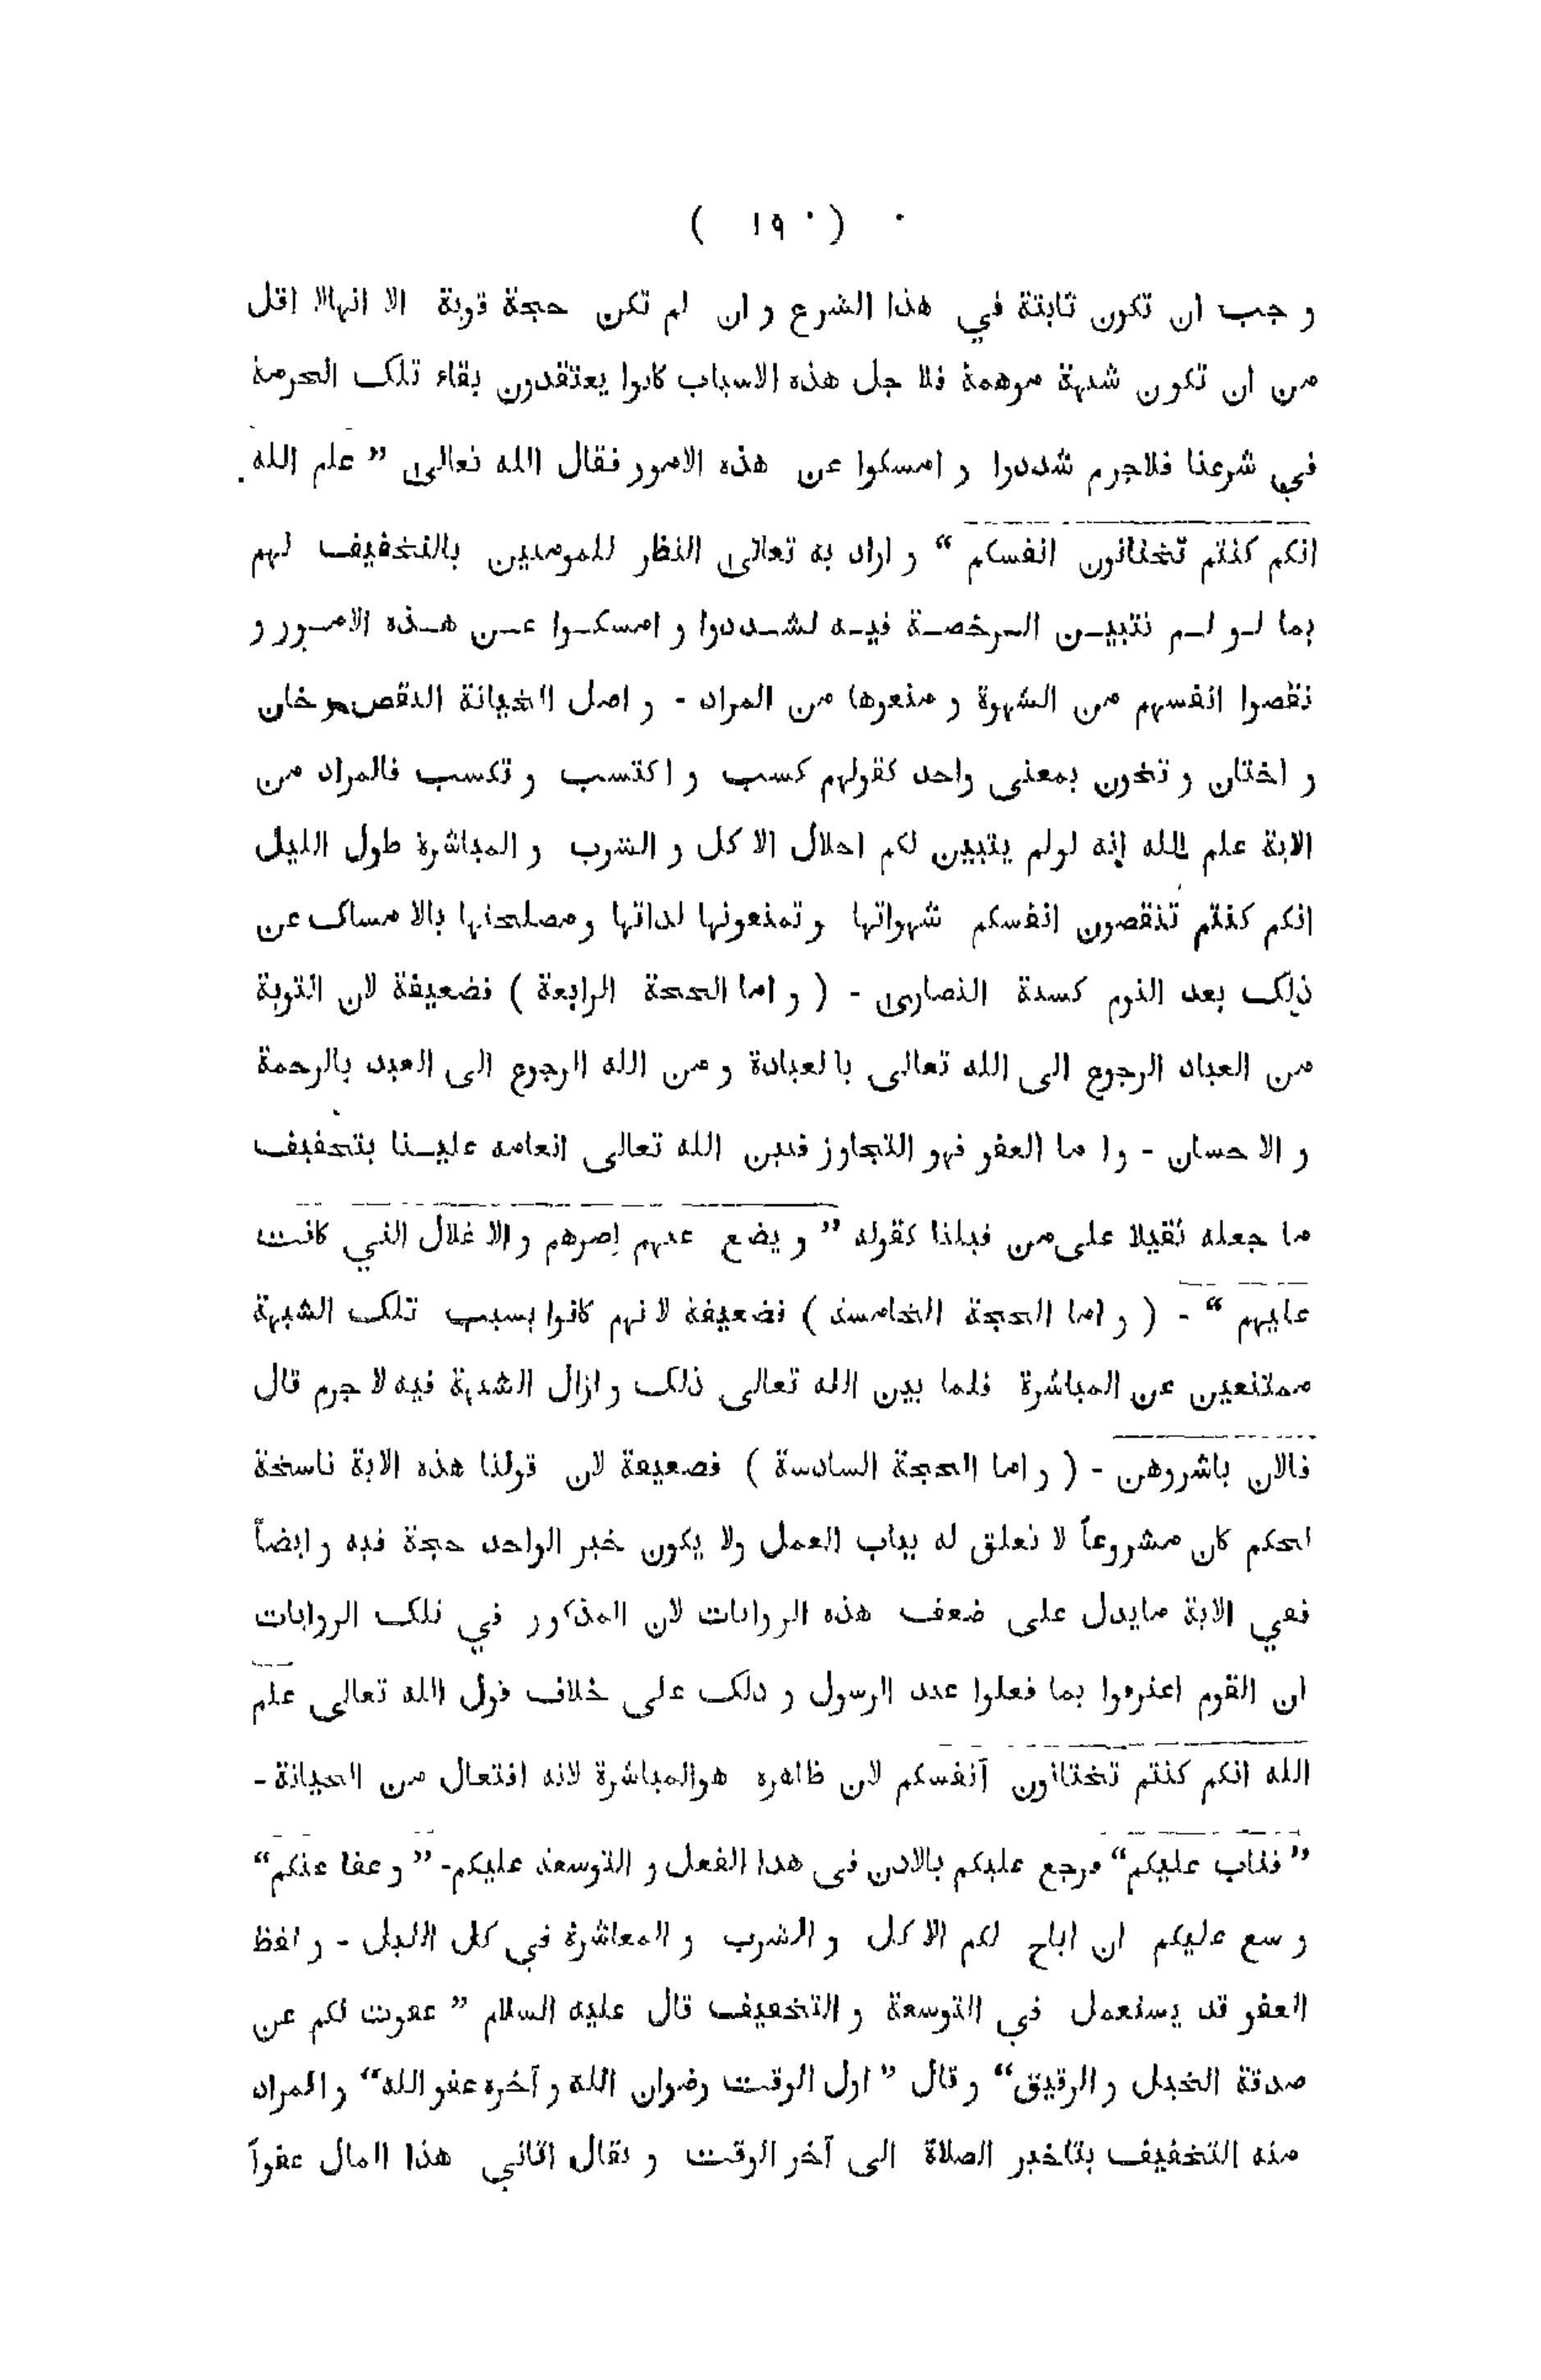 ( ١٩٠ )
و جب ان تكون ثابتة في هذا الشرع و ان لم تكن حجة قوية الا انها لا اقل
من ان تكون شبهة موهمة فلا جل هذه الاسباب كانوا يعتقدون بقاء تلك الحرمة
في شرعنا فلاجرم شددوا و امسكوا عن هذه الامور فقال الله تعالى ” علم الله
انكم كنتم تختانون انفسكم “ و اراد به تعالى النظر للمومنين بالتخفيف لهم
بما لو لم نتبين الرخصة فيه لشددوا و امسكوا عن هذه الامور و
نقصوا انفسهم من الشهوة و منعوها من المراد - و اصل الخيانة النقص و خان
و اختان و تخون بمعنى واحد كقولهم كسب و اكتسب و تكسب فالمراد من
الاية علم الله انه لولم يتبين لكم احلال الاكل و الشرب و المباشرة طول الليل
انكم كنتم تنقصون انفسكم شهواتها و تمنعونها لداتها و مصلحتها بالا مساك عن
ذلك بعد النوم كسنة النصارى - ( و اما الحجة الرابعة ) فضعيفة لان التوبة
من العباد الرجوع الى الله تعالى با لعبادة و من الله الرجوع الى العبد بالرحمة
و الا حسان - وا ما العفو فهو التجاوز فبين الله تعالى انعامه علينا بتخفيف
ما جعله ثقيلا على من قبلنا كقوله ” و يضع عنهم إصرهم و الا غلال التي كانت
عليهم “ - ( و اما الحجة الخامسة ) فضعيفة لا نهم كانوا بسبب تلك الشبهة
ممتنعين عن المباشرة فلما بين الله تعالى ذلك و ازال الشبهة فيه لا جرم قال
فالان باشروهن - ( و اما الحجة السادسة ) فضعيفة لان قولنا هذه الاية ناسخة
لحكم كان مشروعاً لا تعلق له بباب العمل ولا يكون خبر الواحد حجة فيه و ايضاً
ففي الاية مايدل على ضعف هذه الروايات لان المذكور في تلك الروايات
ان القوم اعترفوا بما فعلوا عند الرسول و ذلك على خلاف قول الله تعالى علم
الله انكم كنتم تختانون آنفسكم لان ظاهره هوالمباشرة لانه افتعال من الخيانة -
” فتاب عليكم“ فرجع عليكم بالاذن فى هذا الفعل و التوسعة عليكم- ” و عفا عنكم“
و سع عليكم ان اباح لكم الاكل و الشرب و المعاشرة في كل الليل - و لفظ
العفو قد يستعمل في التوسعة و التخفيف قال عليه السلام ” عفوت لكم عن
صدقة الخيل و الرقيق“ و قال ” اول الوقت رضوان الله و آخره عفو الله“ و المراد
منه التخفيف بتاخير الصلاة الى آخر الوقت و يقال اتاني هذا المال عفواً